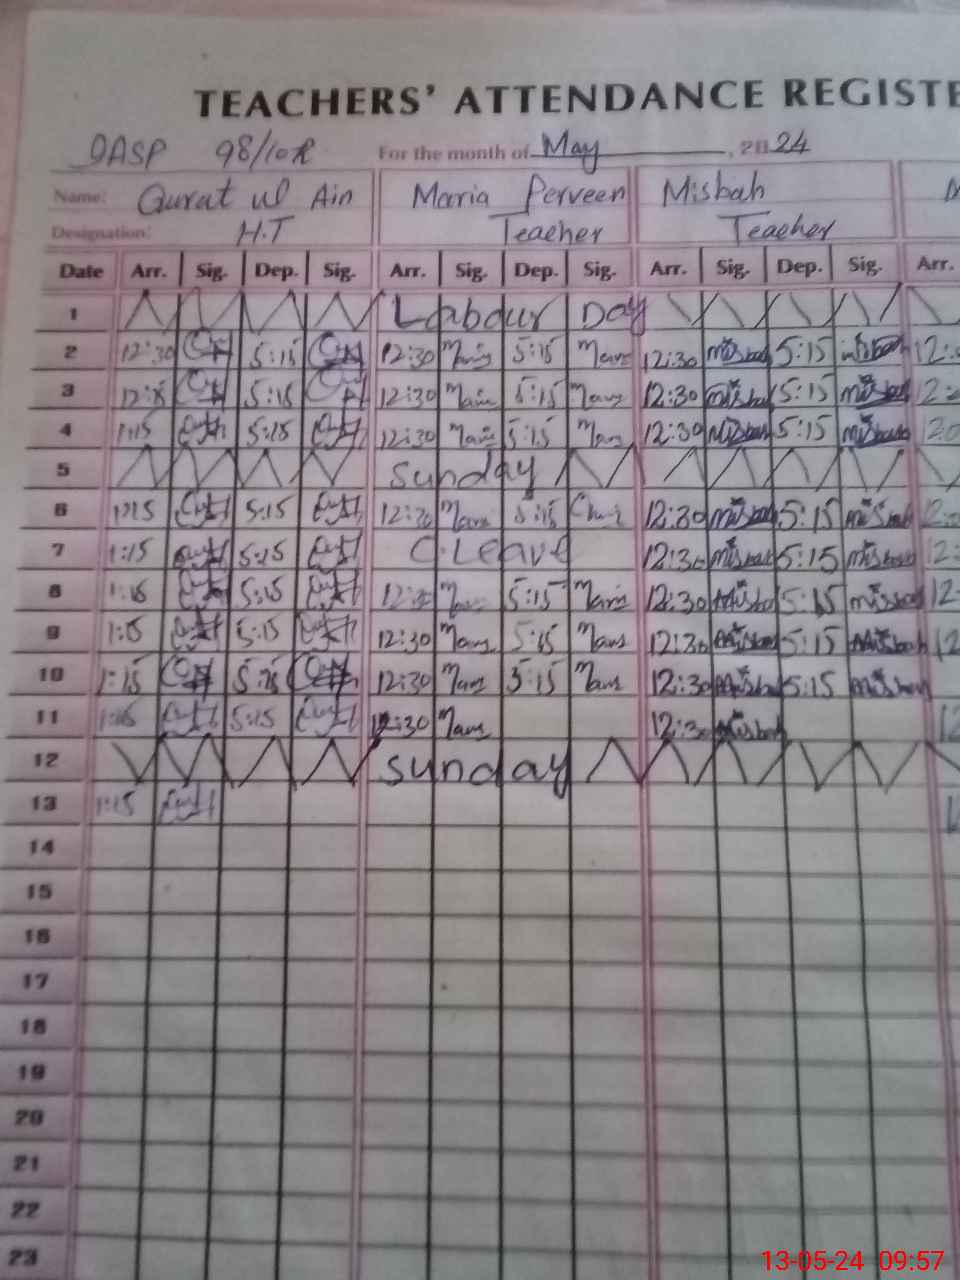 TEACHERS' ATTENDANCE REGISTE
DASP 98/10R For the month of May, 2024
Name: Qurat ul Ain Maria Perveen Misbah
Designation: H.T Teacher Teacher
Date Arr. Sig. Dep. Sig. Arr. Sig. Dep. Sig. Arr. Sig. Dep. Sig. Arr.
1 Labour Day
2 12:30 5:15 12:30 5:15 12:30 Misbah 5:15 Misbah 12:
3 5:15 12:30 5:15 12:30 Misbah 5:15 Misbah
4 1:15 5:15 12:30 5:15 12:30 Misbah 5:15 Misbah
5 Sunday
6 1:15 5:15 12:30 5:15 12:30 Misbah 5:15 Misbah
7 1:15 5:15 C.Leave 12:30 Misbah 5:15 Misbah 12:
8 1:15 5:15 12:30 5:15 12:30 Misbah 5:15 Misbah 12
9 1:15 5:15 12:30 5:15 12:30 Misbah 5:15 Misbah 12
10 1:15 5:15 12:30 5:15 12:30 Misbah 5:15 Misbah 12
11 1:15 5:15 12:30 12:30 Misbah
12 Sunday
13 1:15
14
15
16
17
18
19
20
21
22
23
13-05-24 09:57